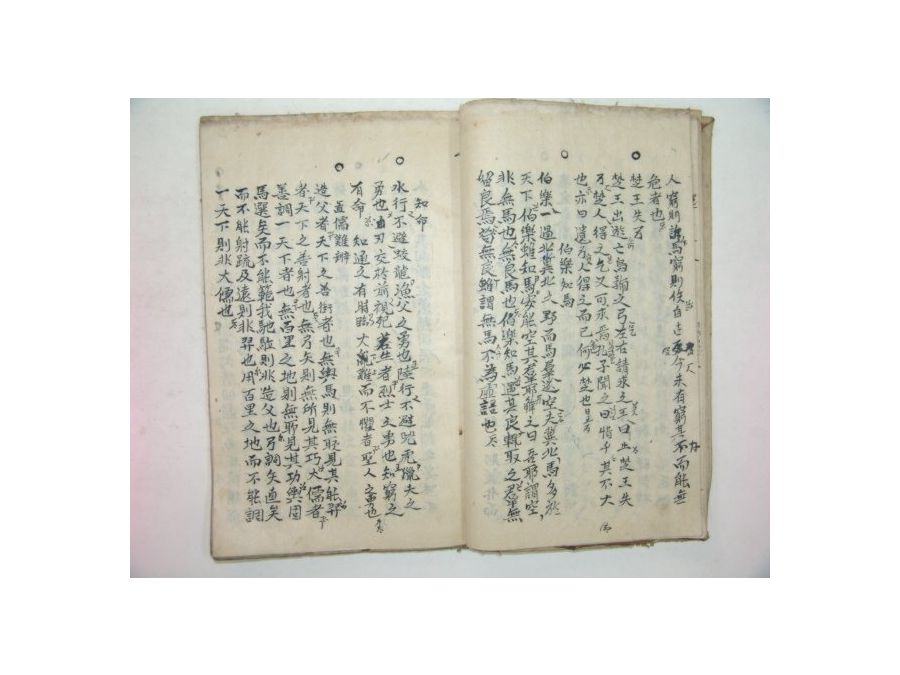 人窮則詐馬窮則佚自古及今未有窮其下而能無
危者也
楚王失弓
楚王出遊亡烏號之弓左右請求之王曰止楚王失
弓楚人得之又何求焉孔子聞之曰惜乎其不大
也亦曰人遺弓人得之而已何必楚也
伯樂知馬
伯樂一過冀北之野而馬羣遂空夫冀北馬多於
天下伯樂雖知馬安能空其羣耶解之曰吾所謂空
非無馬也無良馬也伯樂知馬遇其良輒取之羣無
留良焉苟無良雖謂無馬不為虛語也
知命
水行不避蛟龍漁父之勇也陸行不避兕虎獵夫之
勇也白刃交於前視死若生者烈士之勇也知窮之
有命知通之有時臨大難而不懼者聖人之勇也
孟儒難辨
造父者天下之善御者也無輿馬則無所見其能羿
者天下之善射者也無弓矢則無所見其巧大儒者
善調一天下者也無百里之地則無所見其功輿固
馬選矣而不能範我馳驅則非造父也弓調矢直矣
而不能射疏及遠則非羿也用百里之地而不能調
一天下則非大儒也